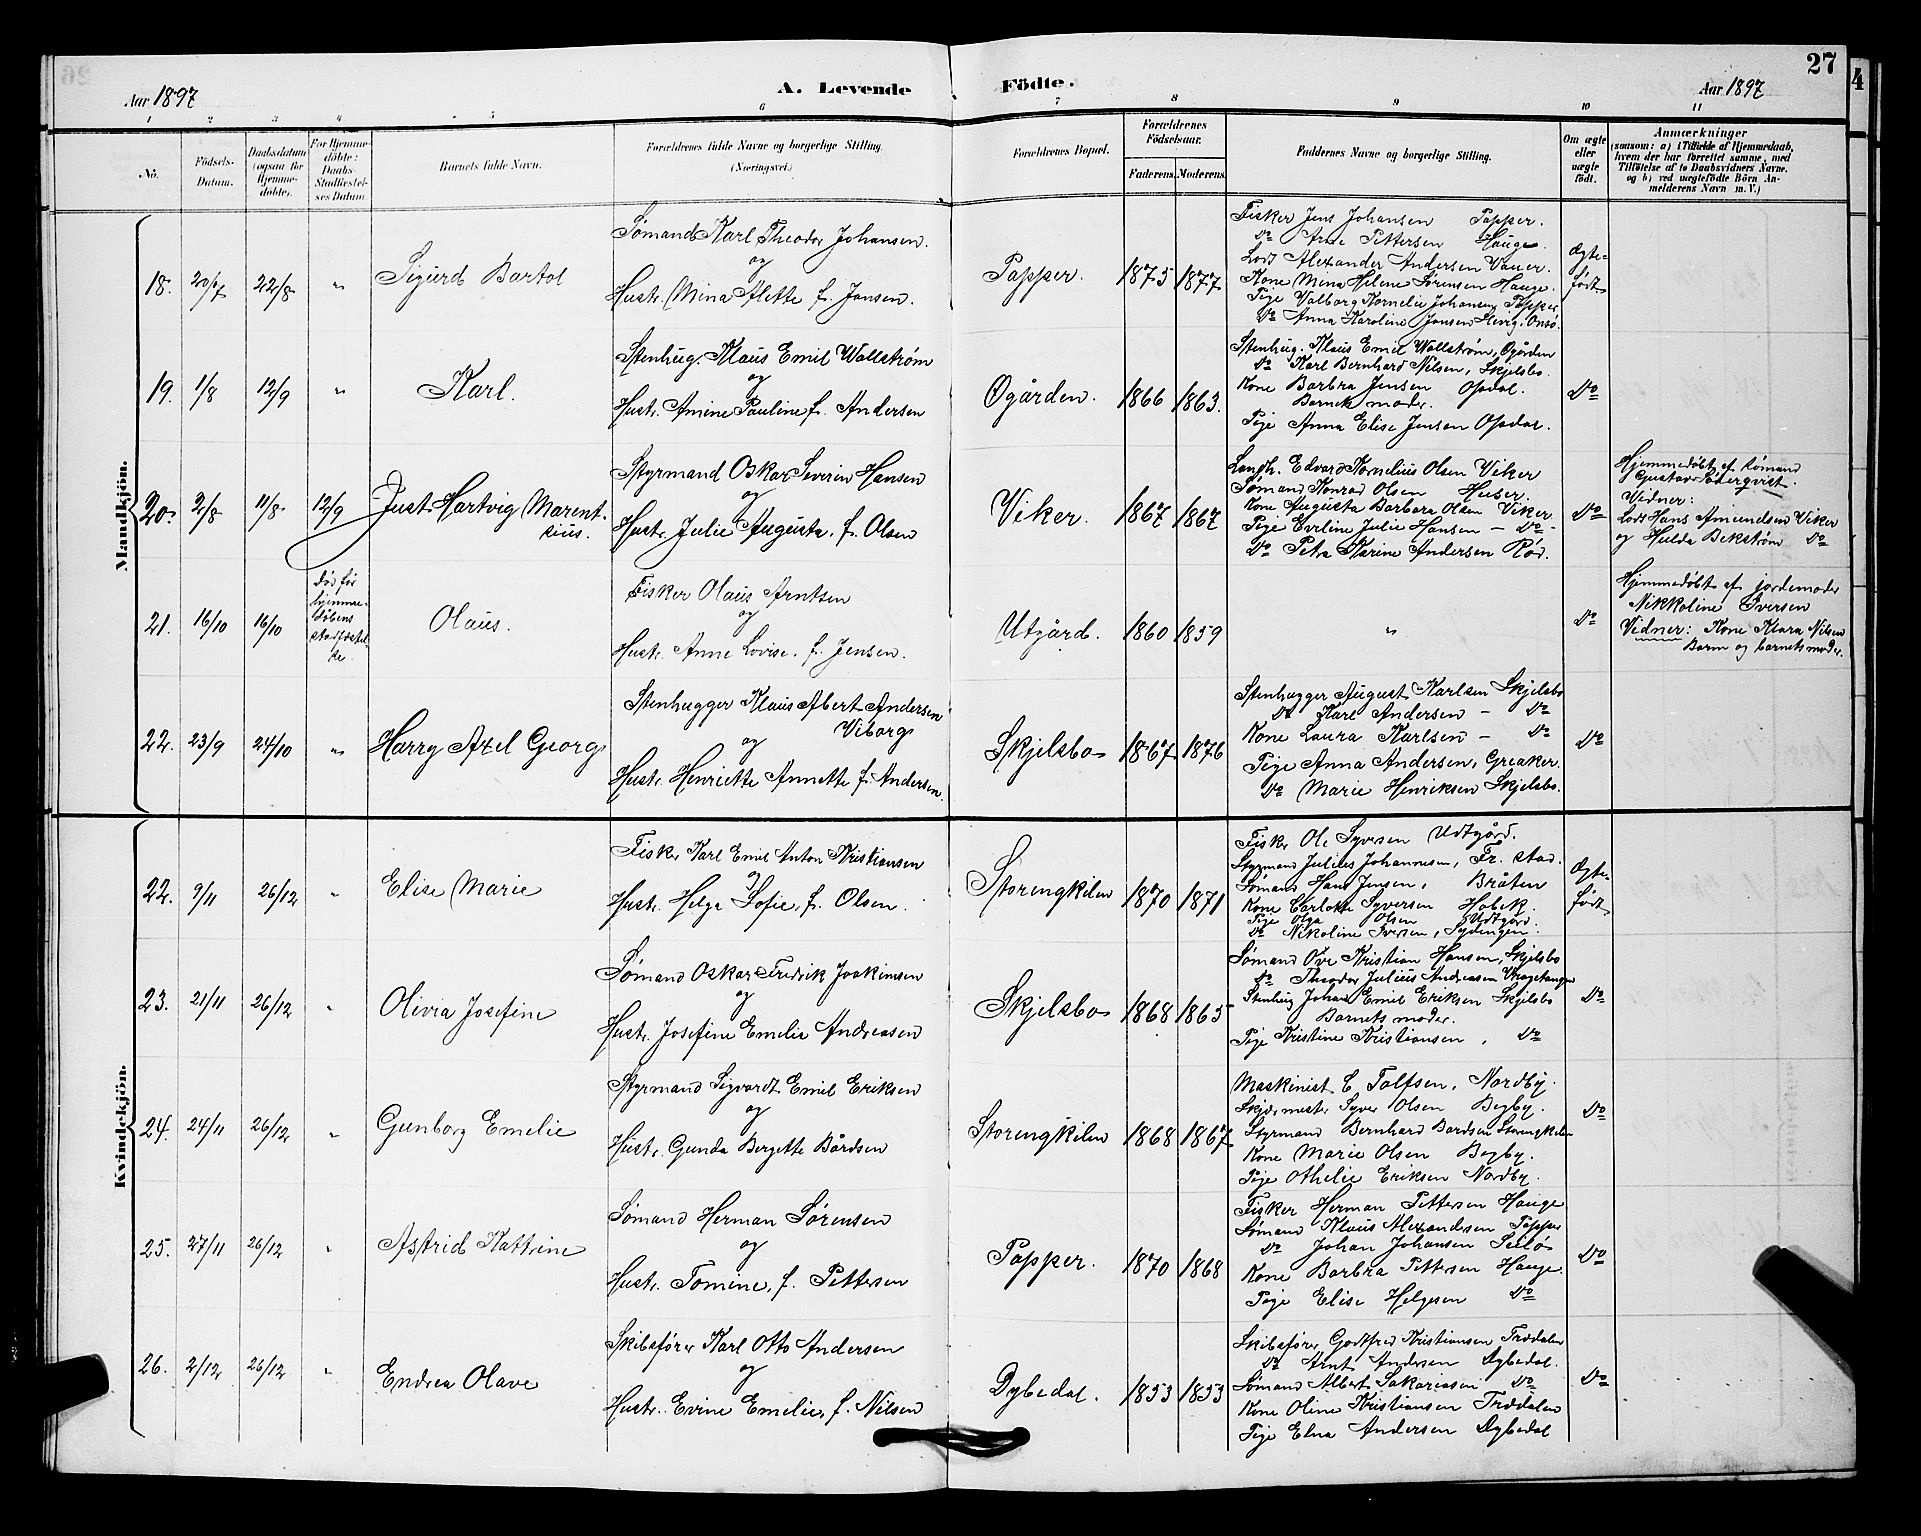 27
Aar 1897
A. Levende Födte.
Aar 1897
1 2 3 4 5 6 7 8 9 10 11
No.
Födsels-Datum.
Daabsdatum (ogsaa for Hjemme-döbte).
For Hjemme-döbte: Daabs-Stadfæstel-ses Datum
Barnets fulde Navn.
Forældrenes fulde Navne og borgerlige Stilling.
(Næringsvei.)
Forældrenes Bopæl.
Forældrenes Födselsaar.
Faderens. Moderens.
Faddernes Navne og borgerlige Stilling.
Om ægte eller uægte födt.
Anmærkninger
(saasom: a) i Tilfælde af Hjemmedaab,
hvem der har forrettet samme, med
Tilföielse af to Daabsvidners Navne.
og b) ved uægtefödte Börn An-
melderens Navn m. V.)
Mandkjön.
18. 20/7 22/8 "
Sigurd Bartol
Sømand Karl Theodor Johansen.
og
Hustr. Mina Alette f. Jansen.
Papper. 1875 1877
Fisker Jens Johansen Papper.
Do Arne Pettersen Hauge.
Lods Alexander Andersen Vauer.
Kone Mina Helene Sørensen Hauge.
Pige Valborg Kornelie Johansen, Papper
Do Anna Karoline Jansen Onsø.
Ægte-
født
19. 1/8 12/9 "
Karl.
Stenhug. Klaus Emil Wallstrøm
og
Hustr. Amine Pauline f. Andersen
Øgården. 1866 1863.
Stenhug. Klaus Emil Wallstrøm, Øgården
Do Karl Bernhard Nilsen, Skjelsbo.
Kone Barbra Jensen Opdal.
Barnets moder.
Pige Anna Elise Jensen Opdal.
Do
20. 2/8 11/8 12/9
Just Hartvig Marent-
sius.
Styrmand Oskar Severin Hansen
og
Hustr. Julie Augusta, f. Olsen
Viker. 1867 1867
Langh. Edvard Kornelius Olsen Viker
Sømand Konrad Olsen Huser.
Kone Augusta Barbara Olsen Viker
Pige Eveline Julie Hansen - Do -
Do Petra Karine Andersen Rød.
Do
Hjemmedøbt af Sømand
Gustav Søderqvist.
Vidner:
Lods Hans Amundsen Viker
og Hulda Bekstrøm Do
21. 16/10 16/10
Død før
hjemme-
døbens
stadfæstel-
se.
Olaus.
Fisker Olaus Arntsen
og
Hustr. Anne Lovise, f. Jensen.
Utgård. 1860 1859
"
Do
Hjemmedøbt af jordemoder
Nikkoline Iversen
Vidner: Kone Klara Nilsen
Barm og barnets moder.
22. 23/9 24/10 "
Harry Axel Georg
Stenhugger Klaus Albert Andersen
Viborg
og
Hustr. Henriette Annette f. Andersen.
Skjelsbo 1867 1876
Stenhugger August Karlsen Skjelsbo
Do Karl Andersen - Do
Kone Laura Karlsen - Do
Pige Anna Andersen, Greaker.
Do Marie Henriksen Skjelsbo.
Do
Kvindekjön.
22. 9/11 26/12 "
Elise Marie
Fisker Karl Emil Anton Kristiansen
og
Hustr. Helga Sofie, f. Olsen.
Storengkilen 1870 1871
Fisker Ole Syversen Udtgård.
Styrmand Julius Johannesen, Fr. stad.
Sømand Hans Jensen, Bråten
Kone Carlotte Syversen Habek.
Pige Olga Olsen Udtgård.
Do Nikoline Iversen, Sydengen.
Ægte-
født
23. 21/11 26/12 "
Olivia Josefine
Sømand Oskar Fredrik Joakimsen
og
Hustr. Josefine Emelie Andreasen
Skjelsbo 1868 1865
Sømand Ove Kristian Hansen, Skjelsbo
Do Theodor Julius Andreasen
Stenhug Johan Emil Eriksen Skjelsbo
Barnets moder.
Pige Kristine Kristiansen, Do
Do
24. 24/11 26/12 "
Gunborg Emelie
Styrmand Sigvardt Emil Eriksen
og
Hustr. Gunda Bergette Bårdsen
Storengkilen 1868 1867
Maskinist C Tolfsen, Nordby.
Syver Olsen Begby.
Styrmand Bernhard Bardsen Storengkilen
Kone Marie Olsen Begby.
Pige Othelie Eriksen Nordby.
Do
25. 27/11 26/12 "
Astrid Kattrine
Sømand Herman Sørensen
og
Hustr. Tomine, f. Pettersen
Papper. 1870 1868
Fisker Herman Pettersen Hauge
Sømand Klaus Alexandersen Papper
Do Johan Johansen
Kone Barbra Pettersen Hauge.
Pige Elise Helgesen Do
Do
26. 2/12 26/12 "
Endrea Olave
Skibsfører Karl Otto Andersen
og
Hustr. Evine Emelie, f. Nilsen
Dybedal. 1853 1853
Skibsfører Godtfred Kristiansen Trødalen
Do Arnt Andersen Dybedal.
Sømand Albert Sakariasen Do
Kone Oline Kristiansen Trødalen
Pige Elna Andersen Dybedal
Do